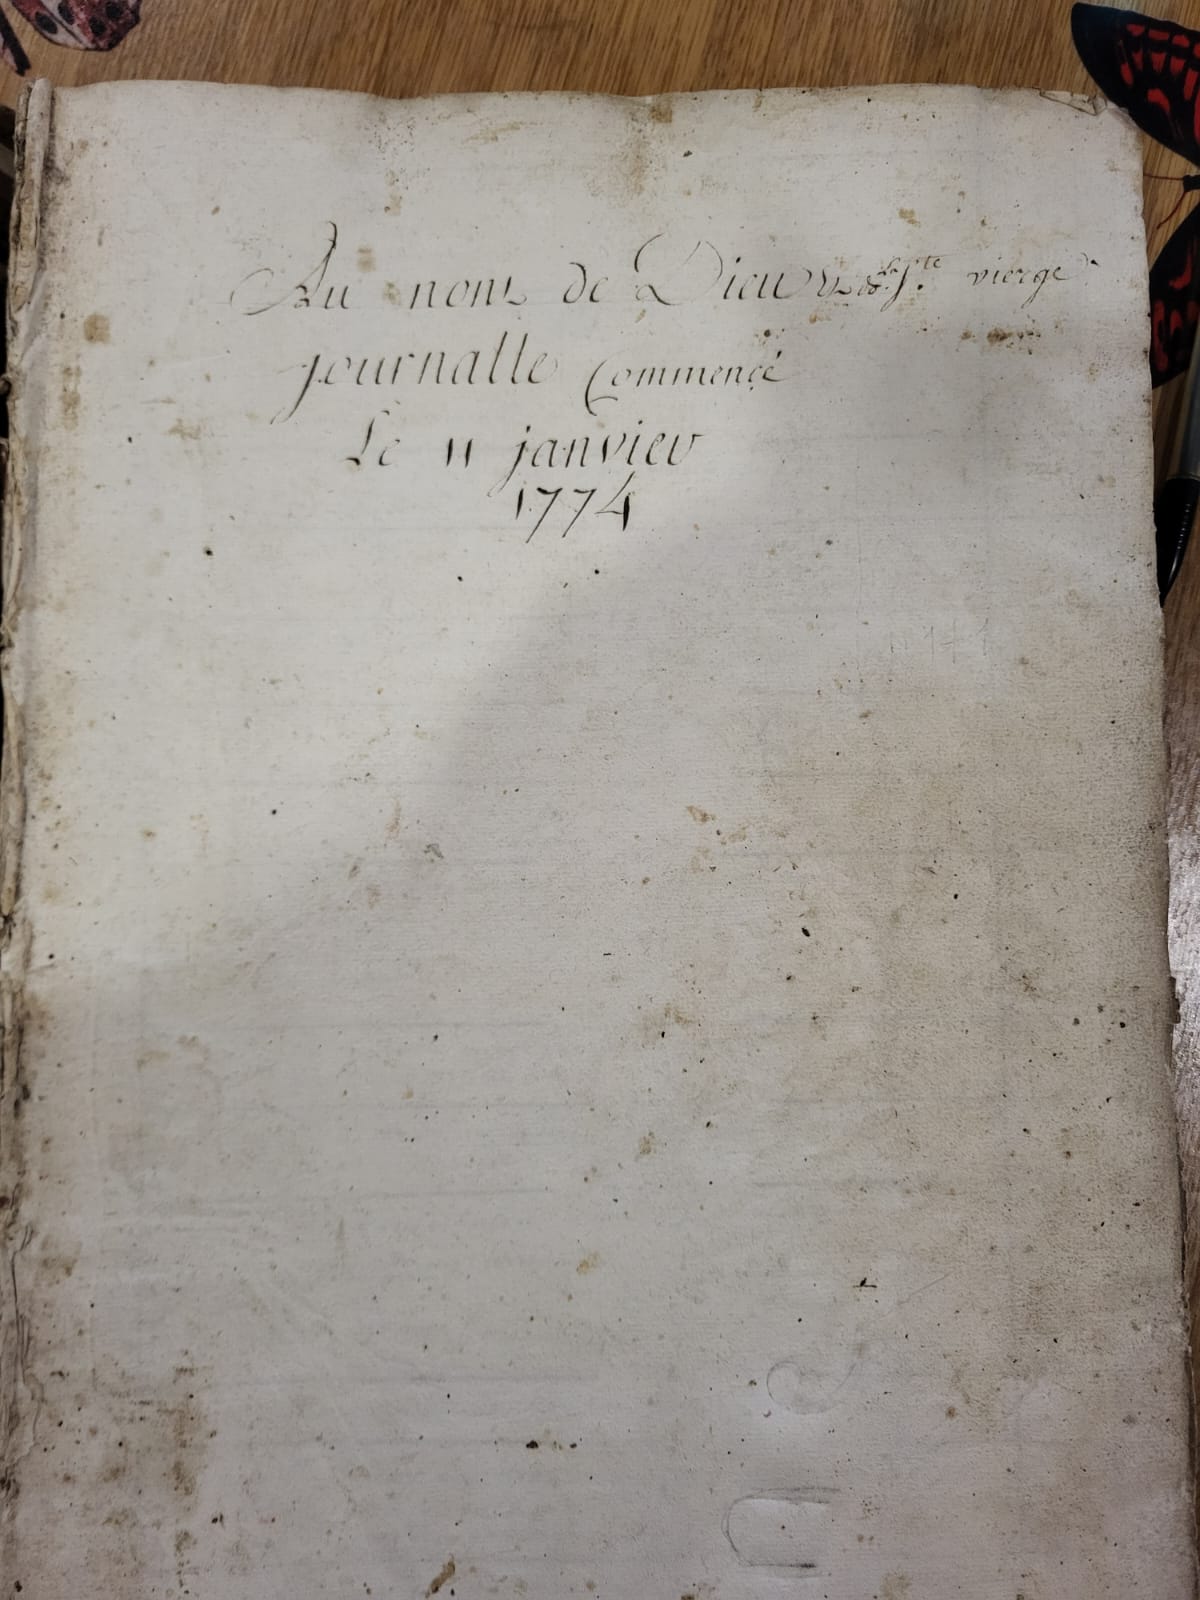 Au nom de Dieu & de la Ste vierge
journalle Commencé
Le 11 janvier
1774